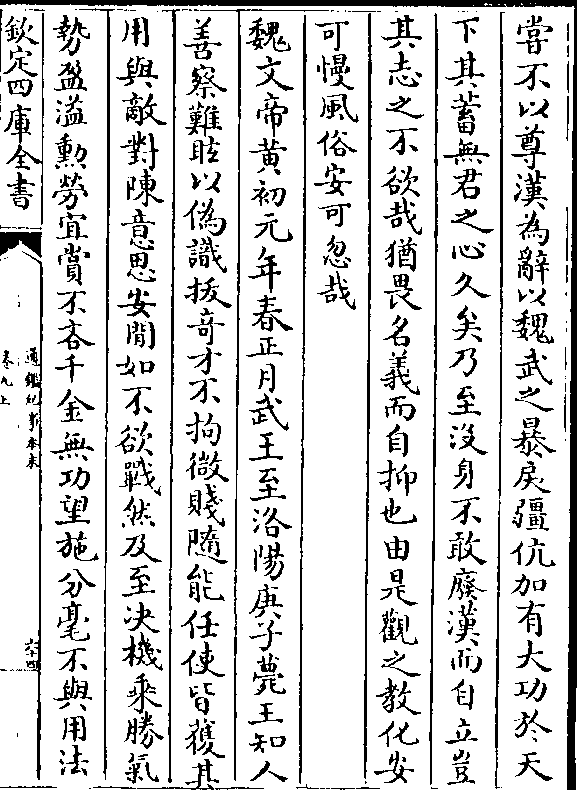 嘗不以尊漢為辭以魏武之暴戾彊伉加有大功於天
下其蓄無君之心久矣乃至沒身不敢廢漢而自立豈
其志之不欲哉猶畏名義而自抑也由是觀之教化安
可慢風俗安可忽哉
魏文帝黄初元年春正月武王至洛陽庚子薨王知人
善察難眩以偽識拔竒才不拘微賤随能任使皆獲其
用與敵對陳意思安閒如不欲戰然及至决機乘勝氣
勢盈溢勲勞宜賞不吝千金無功望施分毫不與用法
欽定四庫全書
通鑑紀事本末
卷九上
六十四